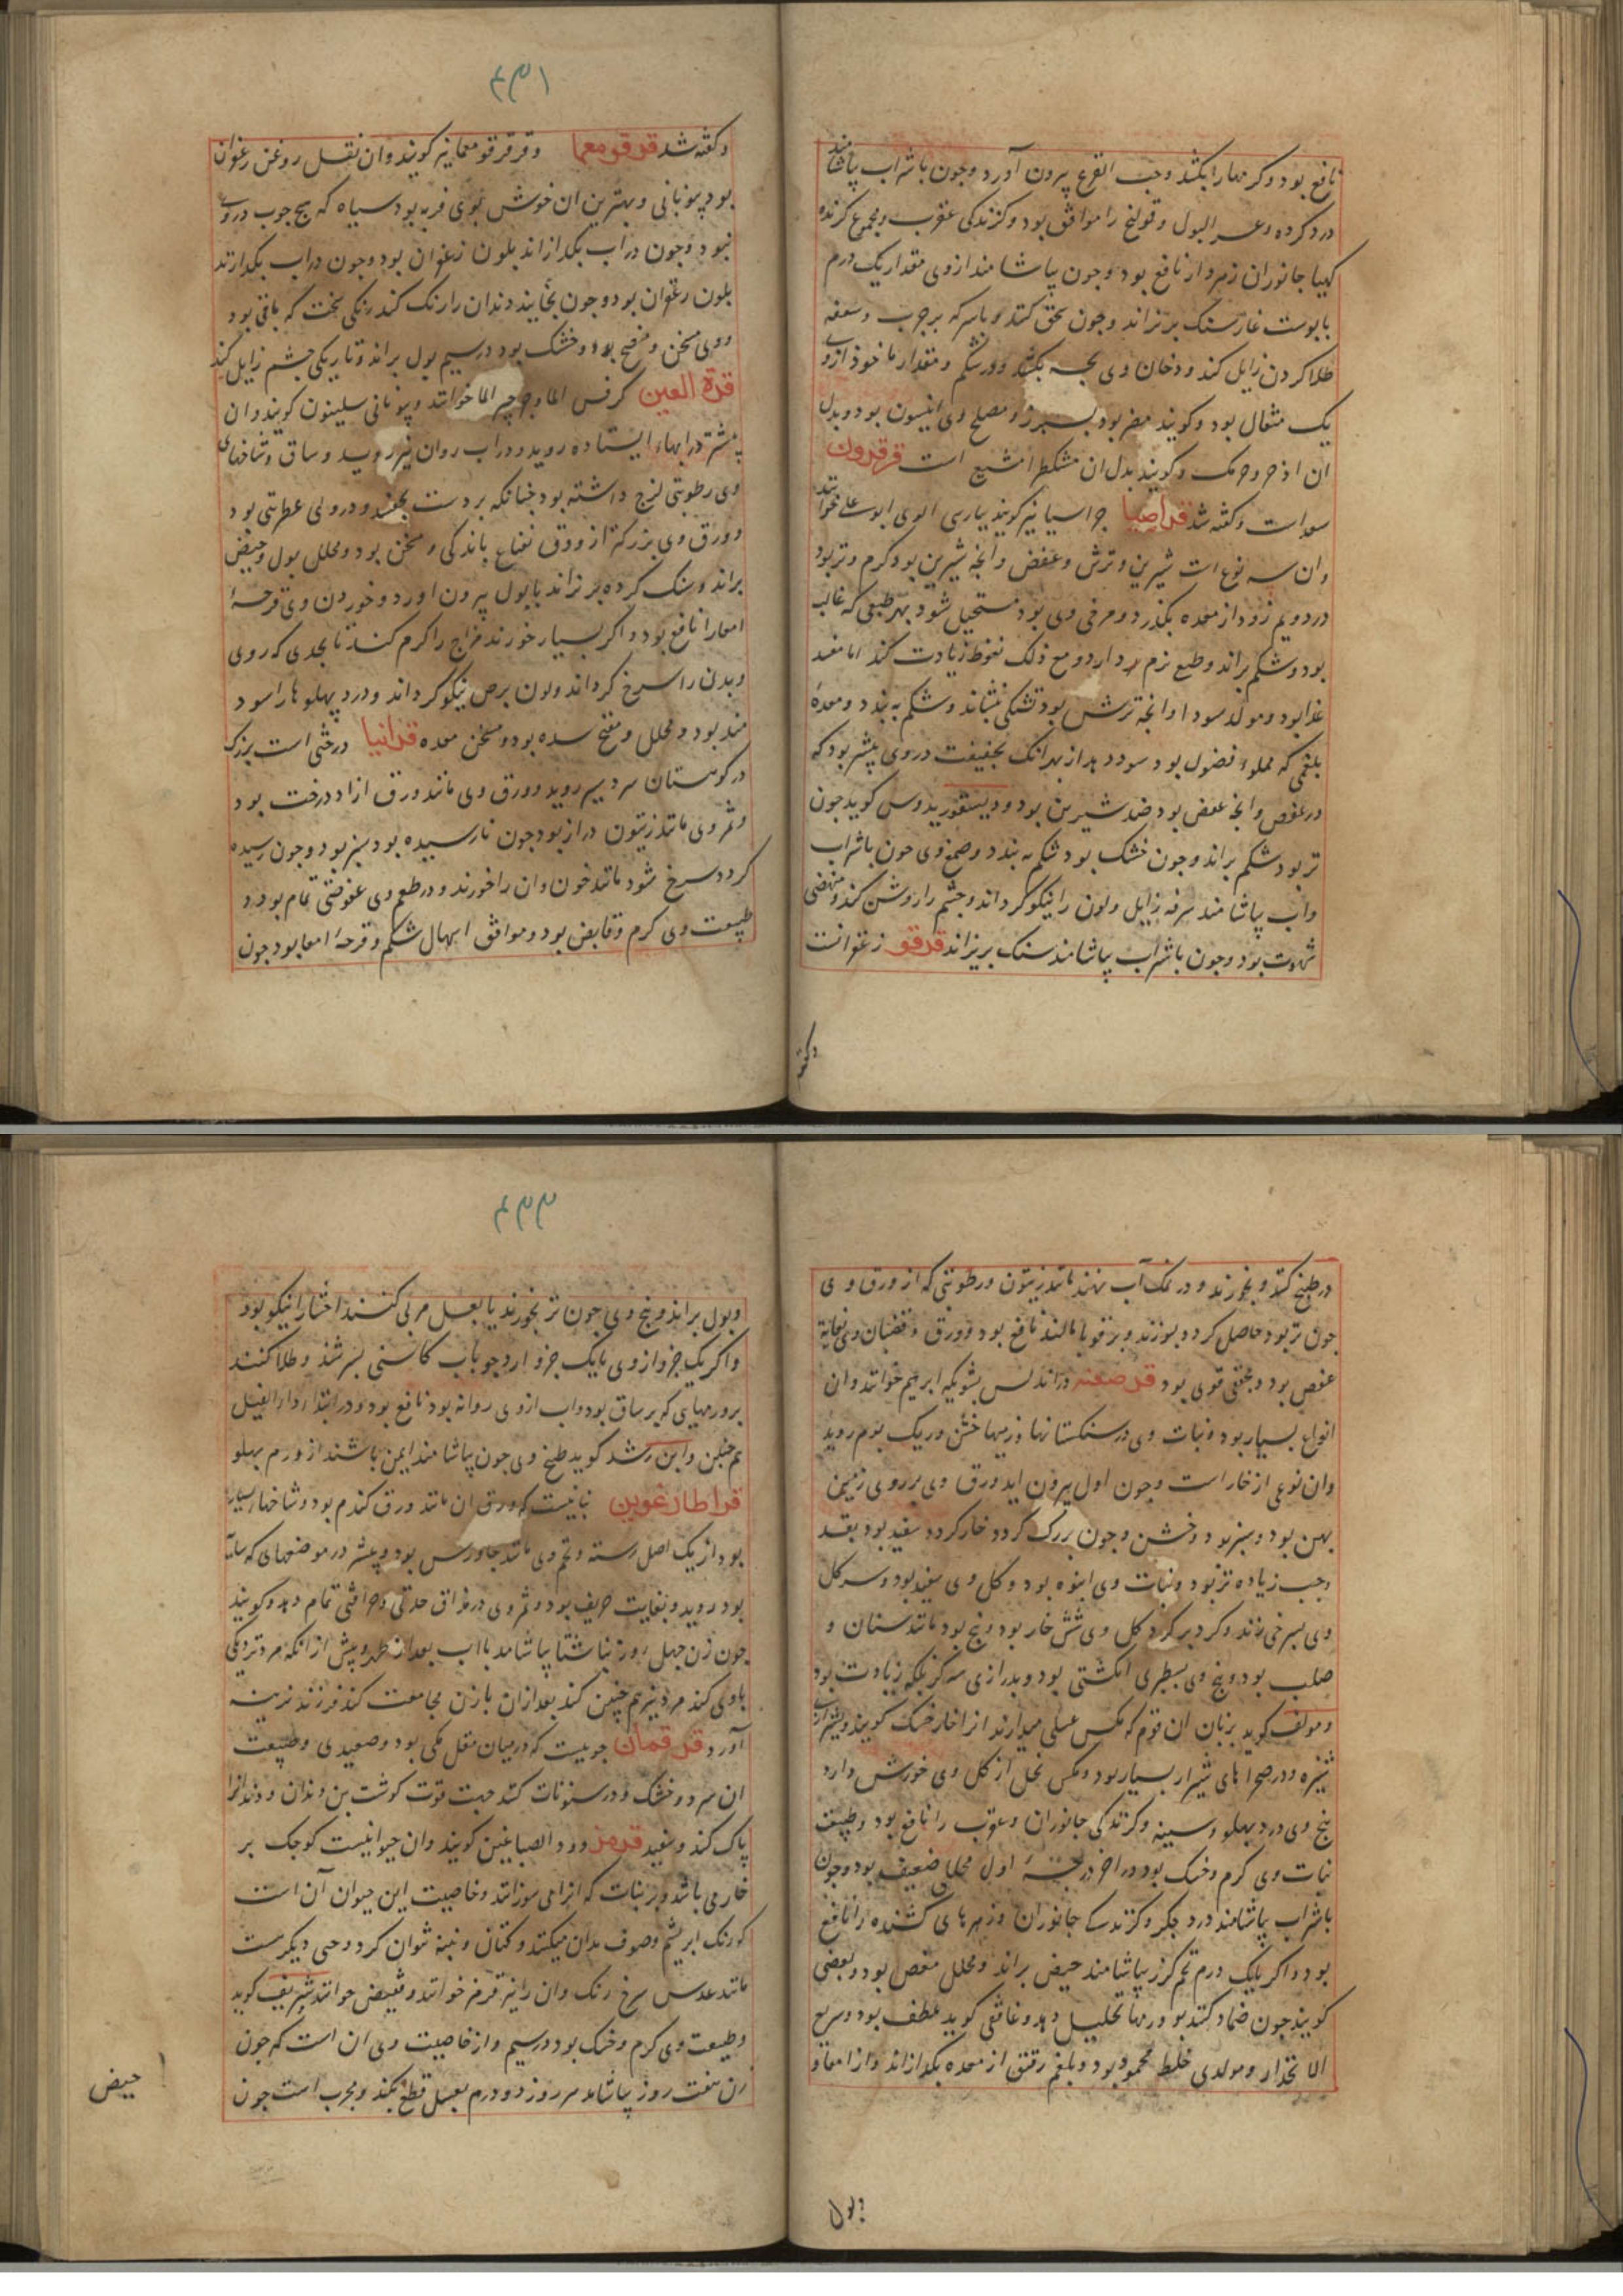 نافع بود و کرمها را بکشد و حب القرع بیرون آورد و چون با شراب بیاشامند
درد کرده و عسر البول و قولنج را موافق بود و کزندکی عقرب و مجموع کزنده
کیها جانوران زهردار نافع بود و چون بیاشامند از وی مقدار یک درم
با پوست غار سنک بریزاند و چون سحق کنند و با سرکه بر جرب و سعفه
طلا کردن زایل کند و دخان وی بچه بکشد در شکم و مقدار ماخوذ از وی
یک مثقال بود و کویند مضر بود بسپرز و مصلح وی انیسون بود و بدل
ان و کویند بدل ان مشکطرامشیع است قرقرون
سعد است و کفته شد قراصیا جراسیا نیز کویند بپارسی الوی ابوعلی خوانند
و ان سه نوع است شیرین و ترش و عفص و انچه شیرین بود کرم و تر بود
در دویم زود از معده بکذرد و مرخی وی بود مستحیل شود بهر طبعی که غالب
بود و شکم براند و طبع نرم دارد و مع ذلک نغوظ زیادت کند اما مفسد
غذا بود و مولد سودا و انچه ترش بود تشنکی بنشاند و شکم ببندد و معده
بلغمی که مملو فضول بود سود دهد از بهر انک تجفیفت در وی بیشتر بود که
در عفص و انچه عفص بود ضد شیرین بود و دیسقوریدوس کوید چون
تر بود شکم براند و چون خشک بود شکم ببندد و صمغ وی چون با شراب
و اب بیاشامند سرفه زایل و لون را نیکو کرداند و چشم را روشن کند و منهضی
شهوت بود و چون با شراب بیاشامند سنک بریزاند قرقو زعفرانست
وکفته
۴۳۱
و کفته شد قرقومعما و قرقرقومعما نیز کویند و ان ثقل روغن زعفران
بود بیونانی و بهترین ان خوش بوی فربه بود سیاه که هیچ چوب در وی
نبود و چون در اب بکدازاند بلون زعفران بود و چون در اب بکدازند
بلون زعفران بود و چون بخایند دندان را رنک کند رنکی سخت که باقی بود
و وی مسخن و منضج بود و خشک بود در سیم بول براند و تاریکی چشم زایل کند
قرة العین کرفس الما و جرجیر الما خوانند و بیونانی سلینون کویند و ان
بیشتر در ابهاء ایستاده روید و در اب روان نیز روید و ساق و شاخهای
وی رطوبتی لزج داشته بود چنانکه بر دست بچفسد و در وی عطریتی بود
و ورق وی بزرکتر از ورق نعناع باندکی و مسخن بود و محلل بول و حیض
براند و سنک کرده بریزاند با بول بیرون اورد و خوردن وی قرحهٔ
امعا را نافع بود و اکر بسیار خورند مزاج را کرم کند تا بحدی که روی
و بدن را سرخ کرداند و لون برص نیکو کرداند و درد پهلوها را سود
مند بود و محلل و مفتح سده بود و مسخن معده قرانیا درختی است بزرک
در کوهستان سردسیر روید و ورق وی مانند ورق ازاد درخت بود
و ثمر وی مانند زیتون دراز بود چون نارسیده بود سبز بود و چون رسیده
کردد سرخ شود مانند خون و ان را خورند و در طعم وی عفوصتی تمام بود و
طبیعت وی کرم و قابض بود و موافق اسهال شکم و قرحهٔ امعا بود چون
در طبخ کنند و بخورند و در نمک آب نهند مانند زیتون و رطوبتی که از ورق وی
چون تر بود حاصل کردد بسوزند و بر قوبا مالند نافع بود و ورق و قضبان وی بغایة
عفص بود و مجفف قوی بود قرصعنه در اندلس بشویکه ابرهیم خوانند و ان
انواع بسیار بود و نبات وی در سنکستانها و زمینها خشن و ریک بوم روید
و ان نوعی از خار است و چون اول بیرون اید ورق وی بر روی زمین
پهن بود و سبز بود و خشن و چون بزرک کردد خار کردد سفید بود بقد
وجب زیاده تر بود و نبات وی انبوه بود و کل وی سفید بود و سر کل
وی بسرخی زند و کرد بر کرد کل وی شش خار بود و نج بود مانند سنان و
صلب بود و بیخ وی بسطبری انکشتی بود و بدرازی سه کز بلکه زیادت بود
و مولف کوید بزبان ان قوم که مکس عسلی میدارند انرا خار خسک کویند و بشیراز
شیزه و در صحراهای شیراز بسیار بود و مکس نحل از کل وی خورش دارد
بیخ وی درد پهلو و سینه و کزندکی جانوران و عقرب را نافع بود و طبیعت
نبات وی کرم و خشک بود در اخر درجهٔ اول محللی ضعیف بود و چون
با شراب بیاشامند درد جکر و کزندکی جانوران و زهرهای کشنده را نافع
بود و اکر با یک درم تخم کزر بیاشامند حیض براند و محلل مغص بود و بعضی
کویند چون ضماد کنند بورمها تحلیل دهد و غافقی کوید ملطف بود و سریع
الانحدار و مولدی خلط محمود بود و بلغم رقیق از معده بکدازاند و از امعا و
وبول
۴۳۲
و بول براند و بیخ وی چون تر بخورند یا بعسل مربی کنند احشا را نیکو بود
و اکر یک جزو از وی با یک جزو ارد جو باب کاسنی بسرشند و طلا کنند
بر ورمهای که بر ساق بود و اب از وی روانه بود نافع بود و در ابتدا داء الفیل
هم چنین و ابن رشد کوید طبخ وی چون بیاشامند ایمن باشند از ورم پهلو
قراطارغوین نباتیست که ورق ان مانند ورق کندم بود و شاخها بسیار
بود از یک اصل رسته و تخم وی مانند جاورس بود و بیشتر در موضعهای که سایه
بود روید و بغایت حریف بود و ثمر وی در مذاق حدتی و حراقتی تمام دهد و کویند
چون زن چهل روز ناشتا بیاشامد با اب بعد از طهر و پیش از انکه مرد نزدیکی
با وی کند مرد نیز هم چنین کند بعد از ان با زن مجامعت کند فرزند نرینه
آورد قرقمان چوبیست که در میان مقل مکی بود و صعیدی و طبیعت
ان سرد و خشک و در سنونات کنند جهت قوت کوشت بن دندان و دندانرا
پاک کند و سفید قرمز دود الصباغین کویند و ان حیوانیست کوچک بر
خار می باشد و بر نبات که انرا می سوزانند و خاصیت این حیوان آن است
که رنک ابریشم و صوف بدان میکنند و کتان و پنبه نتوان کرد و حبی دیکر ست
مانند عدس سرخ رنک و ان را نیز قرمز خوانند و خوانند شریف کوید
و طبیعت وی کرم و خشک بود در سیم و از خاصیت وی ان است که چون
زن هفت روز بیاشامد هر روز دو درم بعسل قطع بکند و مجرب است چون
حیض